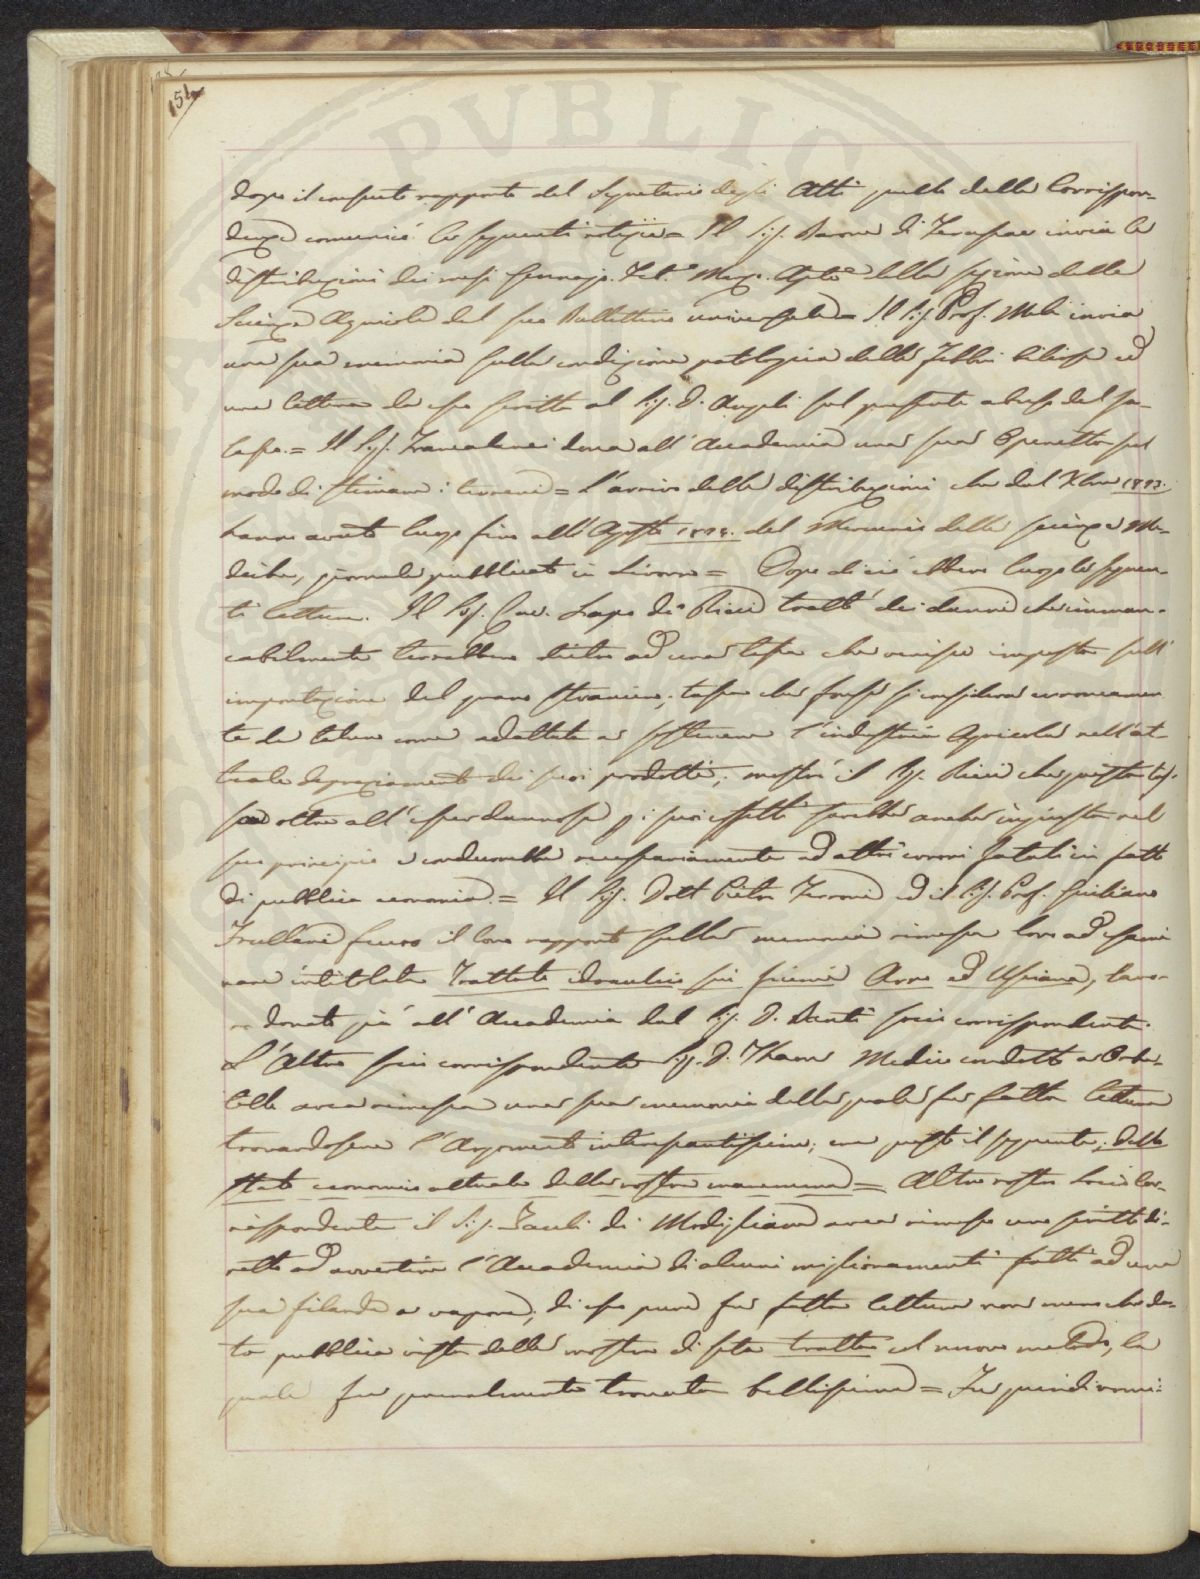 151
dopo il consueto rapporto del Segretario degli Atti quello della Corrispon-
denza comunicò le seguenti notizie = Il Sig. Barone di Ferussac invia le
distribuzioni dei mesi Gennajo. Feb.º Marzo. Aple della sezione delle
Scienze Agricole del suo Bullettino universale = Il Sig. Prof. Meli invia
una sua memoria sulla condizione patologica delle Febbri biliose ed
una lettera da esso scritta al Sig. D. Angeli sul presente abuso del sa-
lasso. = Il Sig. dona all'Accademia una sua Operetta sul
modo di stimare i terreni = L'arrivo delle distribuzioni che dal Xbre 1823.
hanno avuto luogo fino all'Agosto 1824. del Mercurio delle scienze Me-
diche, giornale pubblicato in Livorno = Dopo di ciò ebbero luogo le seguen-
ti letture. Il Sig. Cav. Lapo de' Ricci trattò dei danni che iman-
cabilmente terrebbero dietro ad una tassa che venisse imposta sull'
importazione del grano straniero; tassa che forse si considera erroneamen
te da taluno come adattata a sostenere l'industria Agricola nell'at
tuale deprezziamento dei suoi prodotti; mostrò il Sig. Ricci che questa tas-
sa oltre all'esser dannosa p. i suoi effetti sarebbe anche ingiusta nel
suo principio e condurrebbe necessariamente ad altri errori fatali in fatto
di pubblica economia. = Il Sig. Dott Pietro Ferroni ed il Sig. Prof. Giuliano
Frullani fecero il loro rapporto sulla memoria rimessa loro ad esami
nare intitolata Trattato idraulico sui fiumi Arno ed Usciana, lavo-
ro donato già all'Accademia dal Sig. D. socio corrispondente.
L'Altro socio corrispondente Sig. D. Thaon Medico condotto a Orbe-
tello avea rimessa una sua memoria della quale fu fatta lettura
trovandosene l'Argomento interessantissimo; era questo il seguente; dello
stato economico attuale della nostra maremma = Altro nostro Socio Cor-
rispondente il Sig. di Modigliana avea rimesso uno scritto di-
retto ad avvertire l'Accademia di alcuni miglioramenti fatti ad una
sua filanda a vapore; di esso pure fu fatta lettura non meno che da-
ta pubblica vista della mostra di seta tratta col nuovo metodo, la
quale fu generalmente trovata bellissima = Fu quindi nomi-